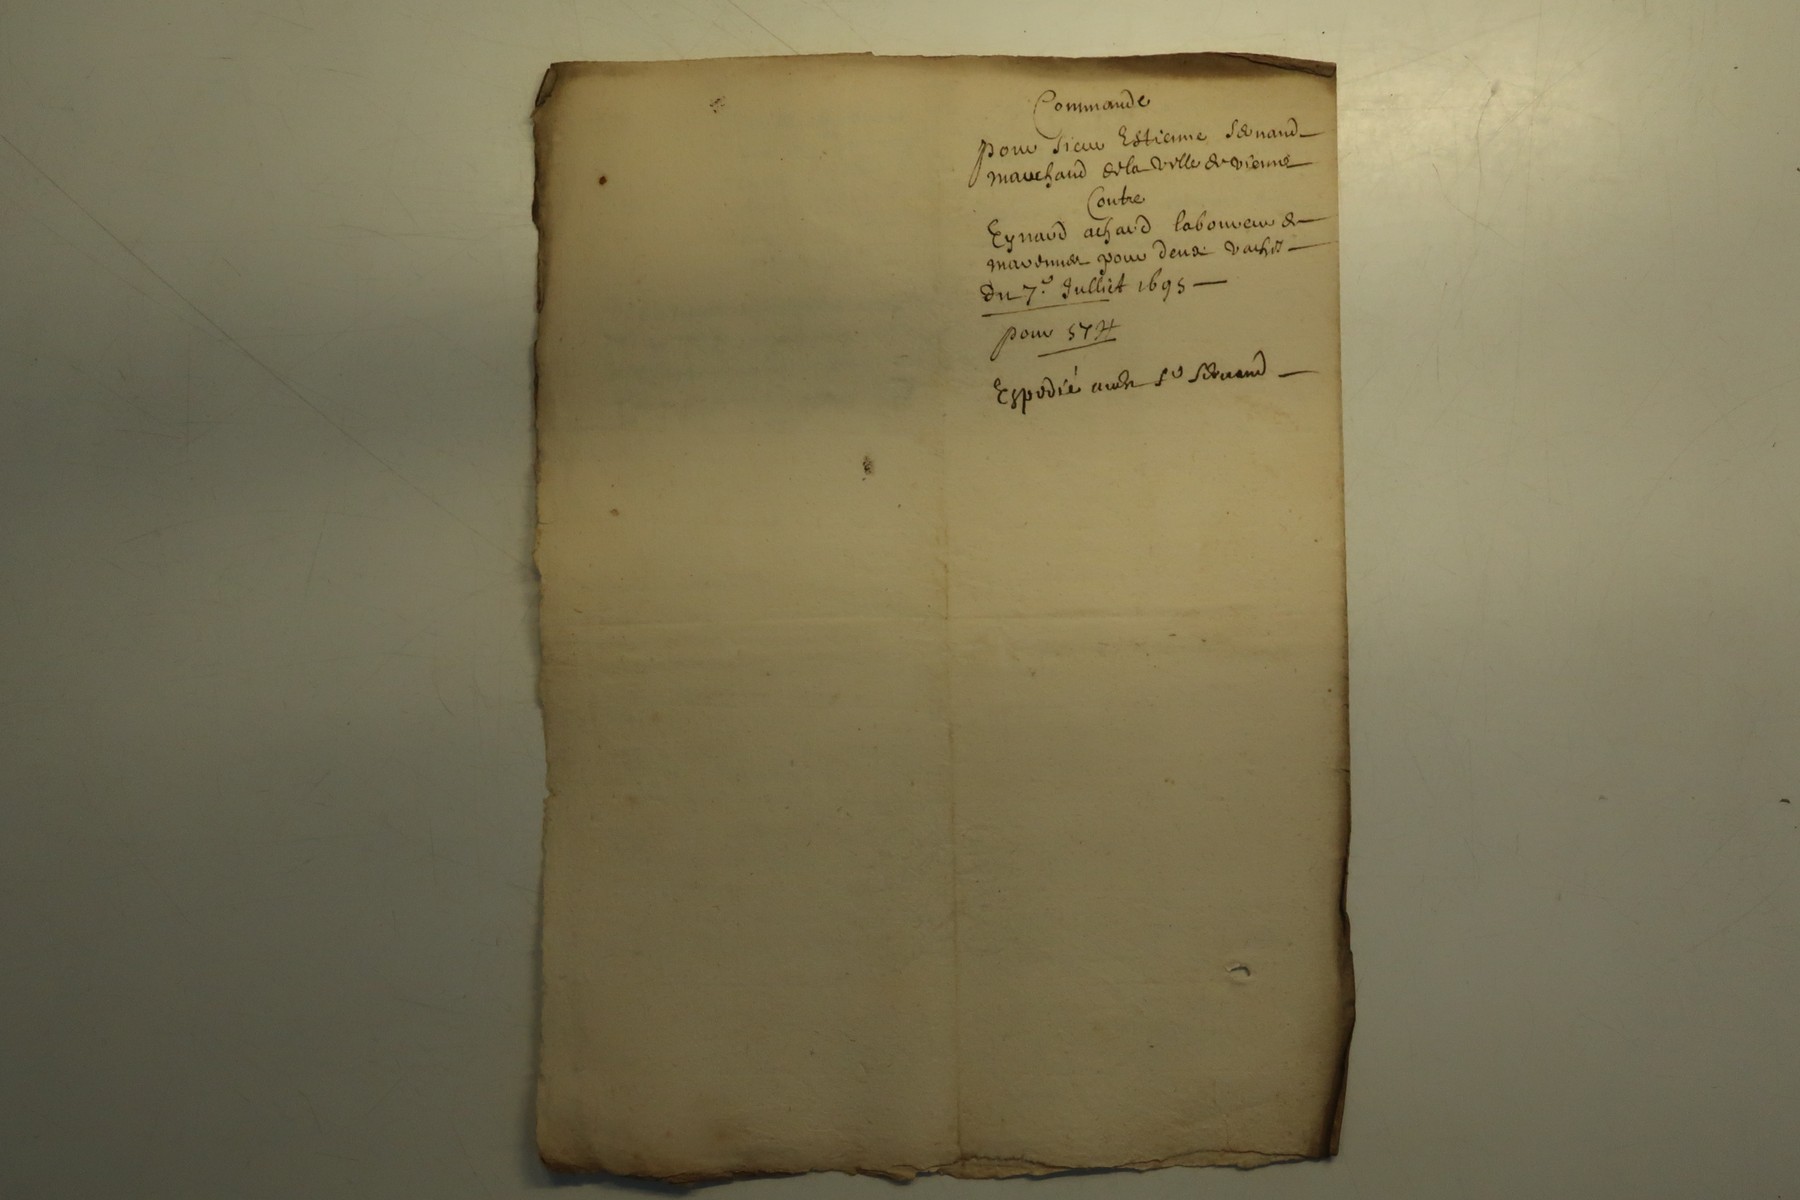 Commande
pour sieur Estienne Servand
marchand de la ville de vienne
Contre
Eynard achard laboureur de
marennes pour deux vaches
Du 7e Julliet 1695
pour 57 ₶
Expedié audt Sr Servand